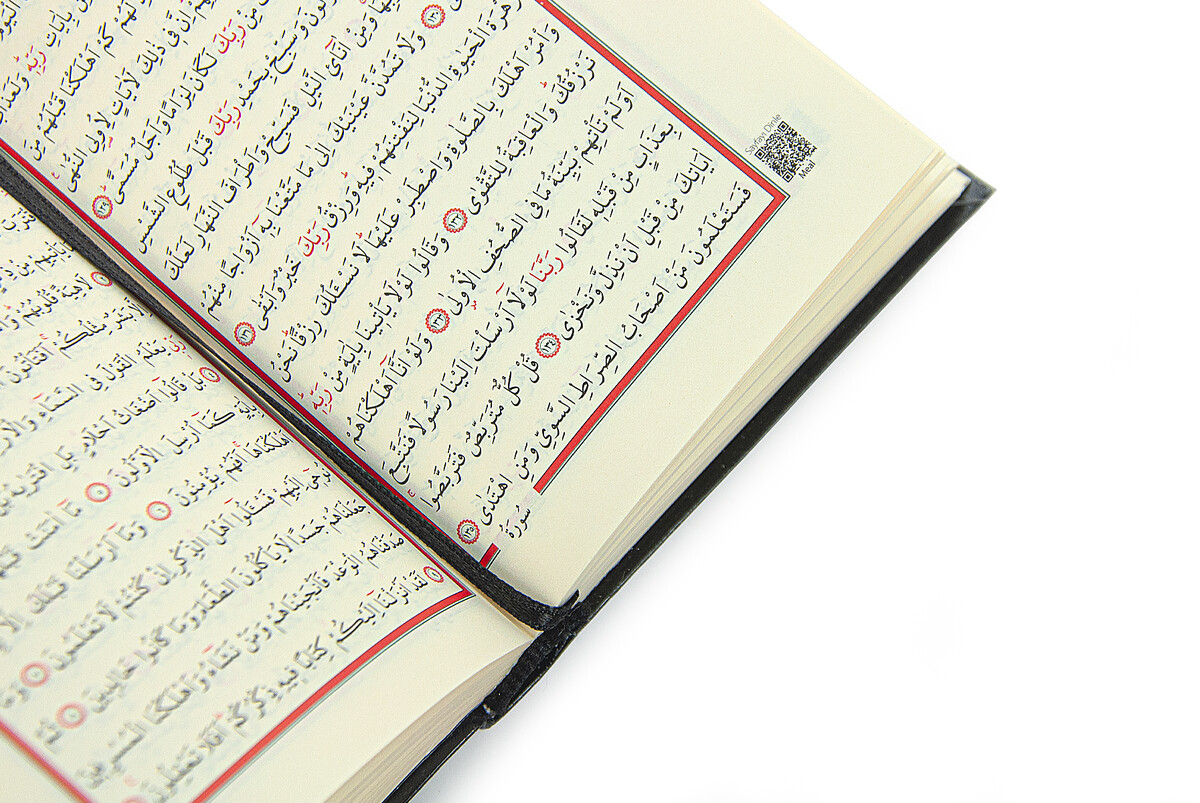 بِاٰيَاتِ رَبِّهٖ وَلَعَذَابُ
لَهُمْ كَمْ اَهْلَكْنَا قَبْلَهُمْ مِنَ
اِنَّ فٖى ذٰلِكَ لَاٰيَاتٍ لِاُولِى النُّهٰى
مِنْ رَبِّكَ لَكَانَ لِزَامًا وَاَجَلٌ مُسَمًّى ﴿١٢٩﴾
وَسَبِّحْ بِحَمْدِ رَبِّكَ قَبْلَ طُلُوعِ الشَّمْسِ
وَمِنْ اٰنَٓائِ الَّيْلِ فَسَبِّحْ وَاَطْرَافَ النَّهَارِ لَعَلَّكَ
﴿١٣٠﴾ وَلَا تَمُدَّنَّ عَيْنَيْكَ اِلٰى مَا مَتَّعْنَا بِهٖٓ اَزْوَاجًا مِنْهُمْ
زَهْرَةَ الْحَيٰوةِ الدُّنْيَا لِنَفْتِنَهُمْ فٖيهِ وَرِزْقُ رَبِّكَ خَيْرٌ وَاَبْقٰى ﴿١٣١﴾
وَاْمُرْ اَهْلَكَ بِالصَّلٰوةِ وَاصْطَبِرْ عَلَيْهَا لَا نَسْـَٔلُكَ رِزْقًا نَحْنُ
نَرْزُقُكَ وَالْعَاقِبَةُ لِلتَّقْوٰى ﴿١٣٢﴾ وَقَالُوا لَوْلَا يَاْتٖينَا بِاٰيَةٍ مِنْ رَبِّهٖ
اَوَلَمْ تَاْتِهِمْ بَيِّنَةُ مَا فِى الصُّحُفِ الْاُولٰى ﴿١٣٣﴾ وَلَوْ اَنَّٓا اَهْلَكْنَاهُمْ
بِعَذَابٍ مِنْ قَبْلِهٖ لَقَالُوا رَبَّنَا لَوْلَٓا اَرْسَلْتَ اِلَيْنَا رَسُولًا فَنَتَّبِعَ
اٰيَاتِكَ مِنْ قَبْلِ اَنْ نَذِلَّ وَنَخْزٰى ﴿١٣٤﴾ قُلْ كُلٌّ مُتَرَبِّصٌ فَتَرَبَّصُوا
فَسَتَعْلَمُونَ مَنْ اَصْحَابُ الصِّرَاطِ السَّوِىِّ وَمَنِ اهْتَدٰى ﴿١٣٥﴾
سُورَةُ
Sayfayı Dinle
Meal
لَاهِيَةً قُلُوبُهُمْ
بَشَرٌ مِثْلُكُمْ اَفَتَاْتُونَ
يَعْلَمُ الْقَوْلَ فِى السَّمَٓاءِ وَالْاَرْضِ
بَلْ قَالُٓوا اَضْغَاثُ اَحْلَامٍ بَلِ افْتَرٰيهُ
بِاٰيَةٍ كَمَٓا اُرْسِلَ الْاَوَّلُونَ ﴿٥﴾ مَٓا اٰمَنَتْ قَبْلَهُمْ
اَهْلَكْنَاهَا اَفَهُمْ يُؤْمِنُونَ ﴿٦﴾ وَمَٓا اَرْسَلْنَا قَبْلَكَ
نُوحٖٓى اِلَيْهِمْ فَسْـَٔلُٓوا اَهْلَ الذِّكْرِ اِنْ كُنْتُمْ لَا تَعْلَمُونَ ﴿٧﴾ وَمَا
جَعَلْنَاهُمْ جَسَدًا لَا يَاْكُلُونَ الطَّعَامَ وَمَا كَانُوا خَالِدٖينَ ﴿٨﴾ ثُمَّ
صَدَقْنَاهُمُ الْوَعْدَ فَاَنْجَيْنَاهُمْ وَمَنْ نَشَٓاءُ وَاَهْلَكْنَا الْمُسْرِفٖينَ
﴿٩﴾ لَقَدْ اَنْزَلْنَٓا اِلَيْكُمْ كِتَابًا فٖيهِ ذِكْرُكُمْ اَفَلَا تَعْقِلُونَ